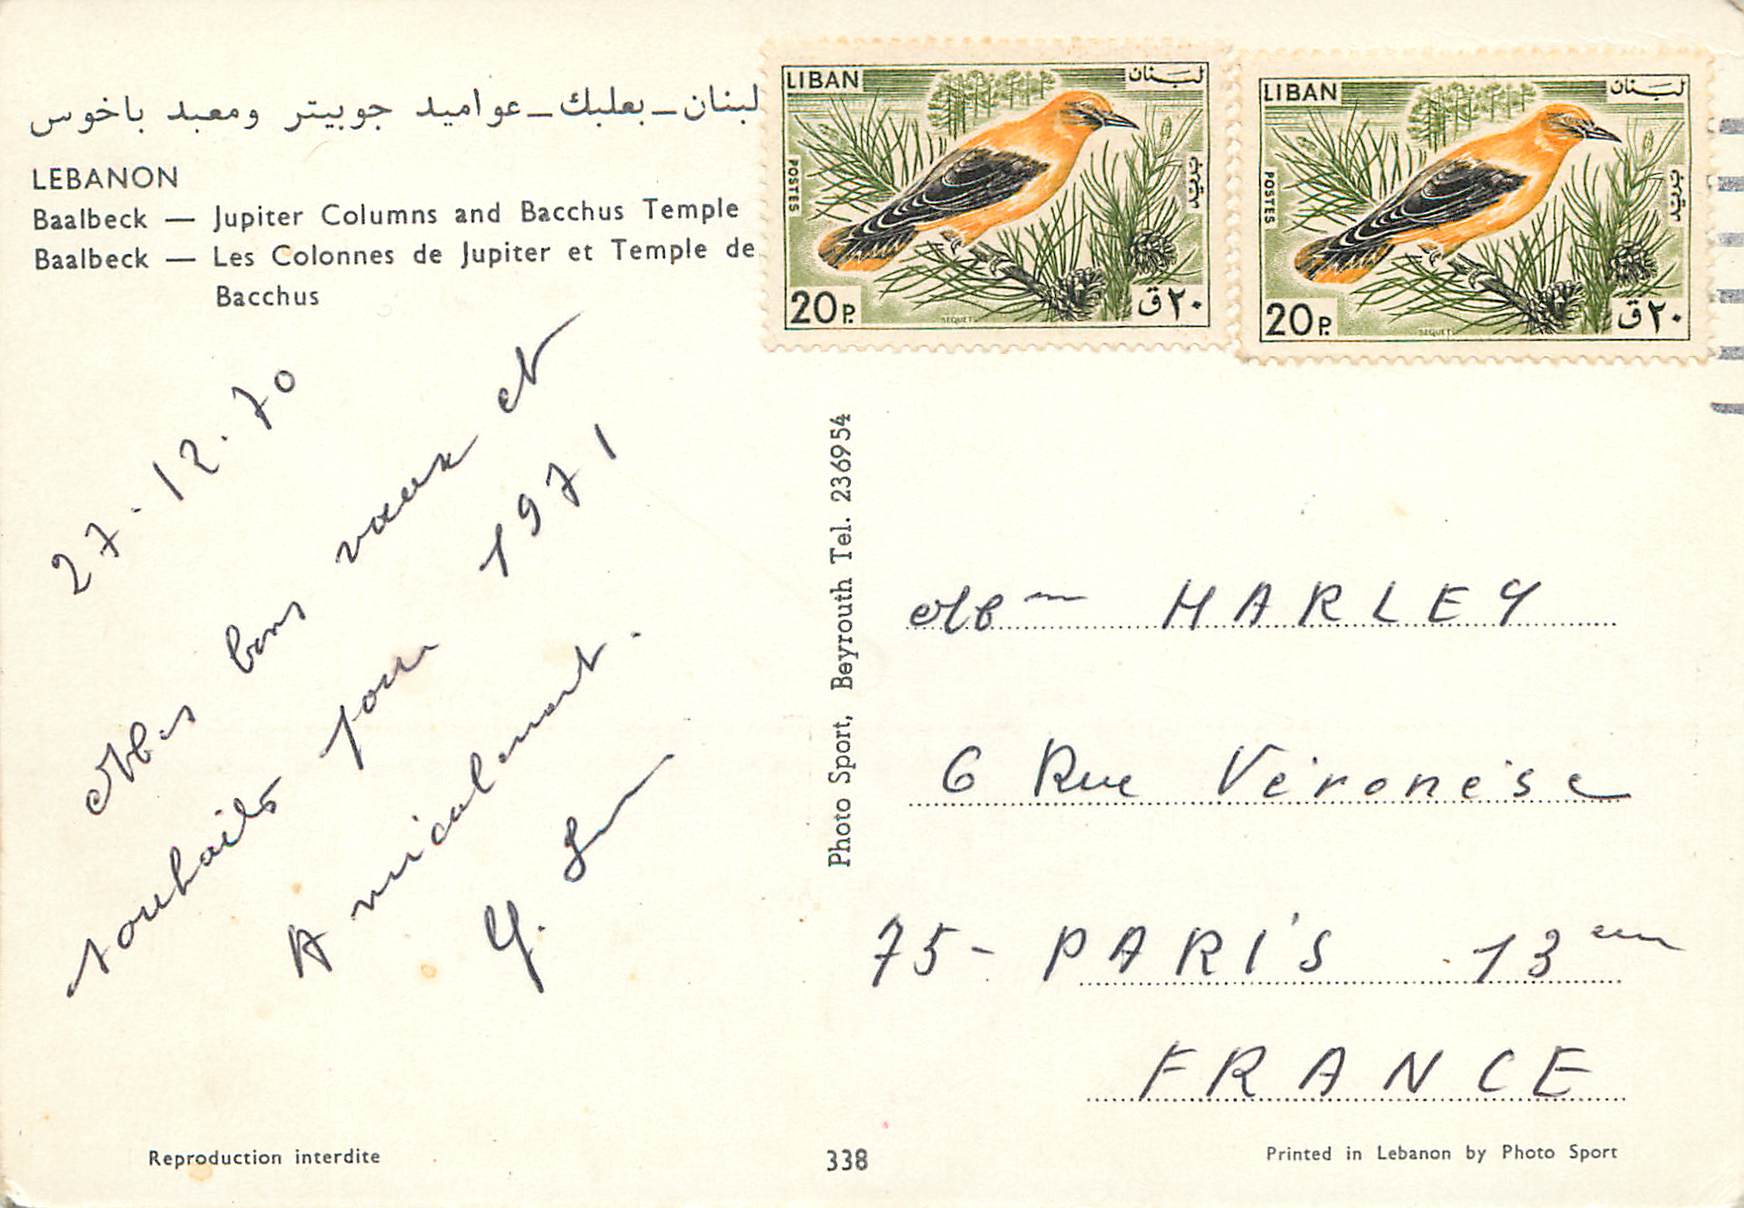 لبنان – بعلبك – عواميد جوبيتر ومعبد باخوس
LEBANON
Baalbeck — Jupiter Columns and Bacchus Temple
Baalbeck — Les Colonnes de Jupiter et Temple de
Bacchus
LIBAN لبنان
POSTES بريد
20 P. ٢٠ ق
LIBAN لبنان
POSTES بريد
20 P. ٢٠ ق
27.12.70
Mes bons vœux et
souhaits pour 1971
Amicalement.
Y.
Photo Sport, Beyrouth Tel. 236954
Mme HARLEY
6 Rue Véronèse
75 - PARIS 13em
FRANCE
Reproduction interdite
338
Printed in Lebanon by Photo Sport